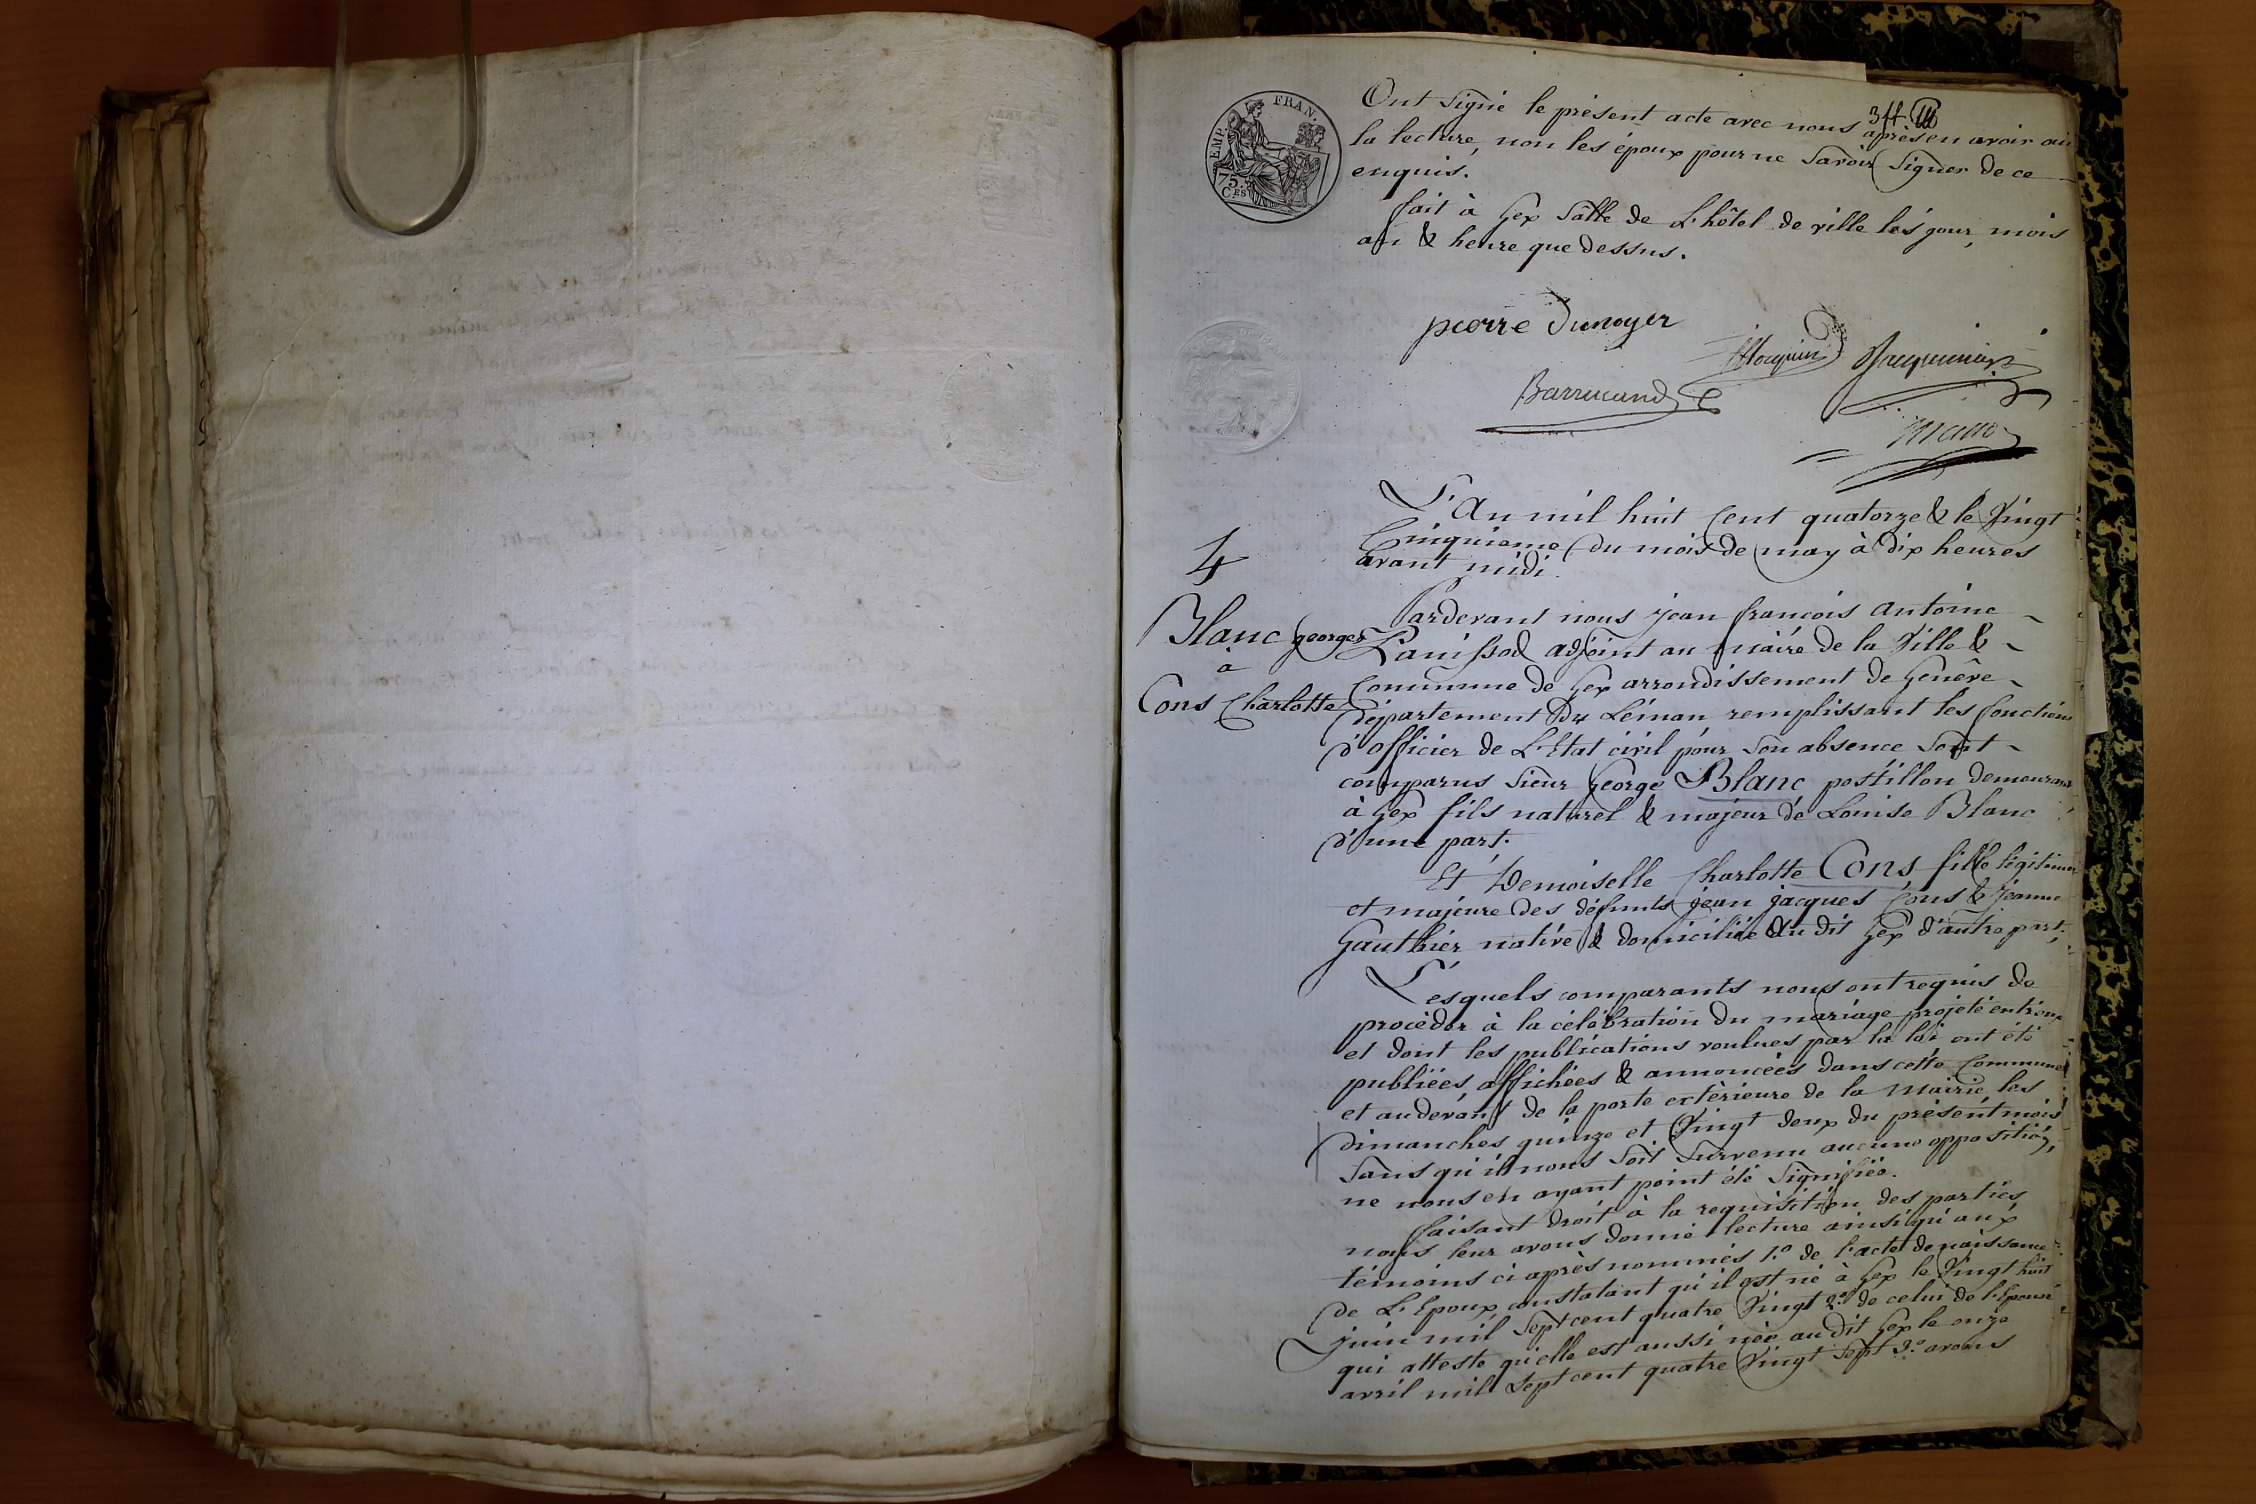 Ont signé le présent acte avec nous après en avoir ouï
la lecture, non les époux pour ne savoir signer de ce
enquis.
fait à Gex salle de L'hôtel de ville les jour, mois
an & heure que dessus.
EMP. FRAN.
75.
Ces
pierre dunoyer
Barrucand
L'An mil huit Cent quatorze & le Vingt
Cinquieme du mois de may à dix heures
avant midi.
4
Blanc georges
à
Cons Charlotte
Pardevant nous jean françois antoine
adjoint au maire de la Ville &
Commune de Gex arrondissement de Genêve
département du Léman remplissant les fonctions
d'officier de L'Etat civil pour son absence sont
comparus sieur George Blanc postillon demeurant
à Gex fils naturel & majeur de Louise Blanc
d'une part.
Et Demoiselle Charlotte Cons fille légitime
et majeure des défunts jean jacques Cons & Jeanne
Gauthier native & domiciliée du dit Gex d'autre part.
Lesquels comparants nous ont requis de
procèder à la célébration du mariage projeté entr'eux
et dont les publications voulues par la loi ont été
publiées affichées & annoncées dans cette Commune
et audevant de la porte extèrieure de la Mairie, les
dimanches quinze et Vingt deux du présent mois
sans qu'il nous soit survenu aucune opposition,
ne nous en ayant point été signifiée.
faisant droit à la requisition des parties
nous leur avons donné lecture ainsi qu'aux
témoins ci après nommés 1.o de l'acte de naissance
de L'Epoux constatant qu'il est né à Gex le Vingt huit
juin mil sept cent quatre Vingt 2.o de celui de l'Epouse
qui atteste qu'elle est aussi née au dit Gex le onze
avril mil sept cent quatre Vingt sept 3.o avons